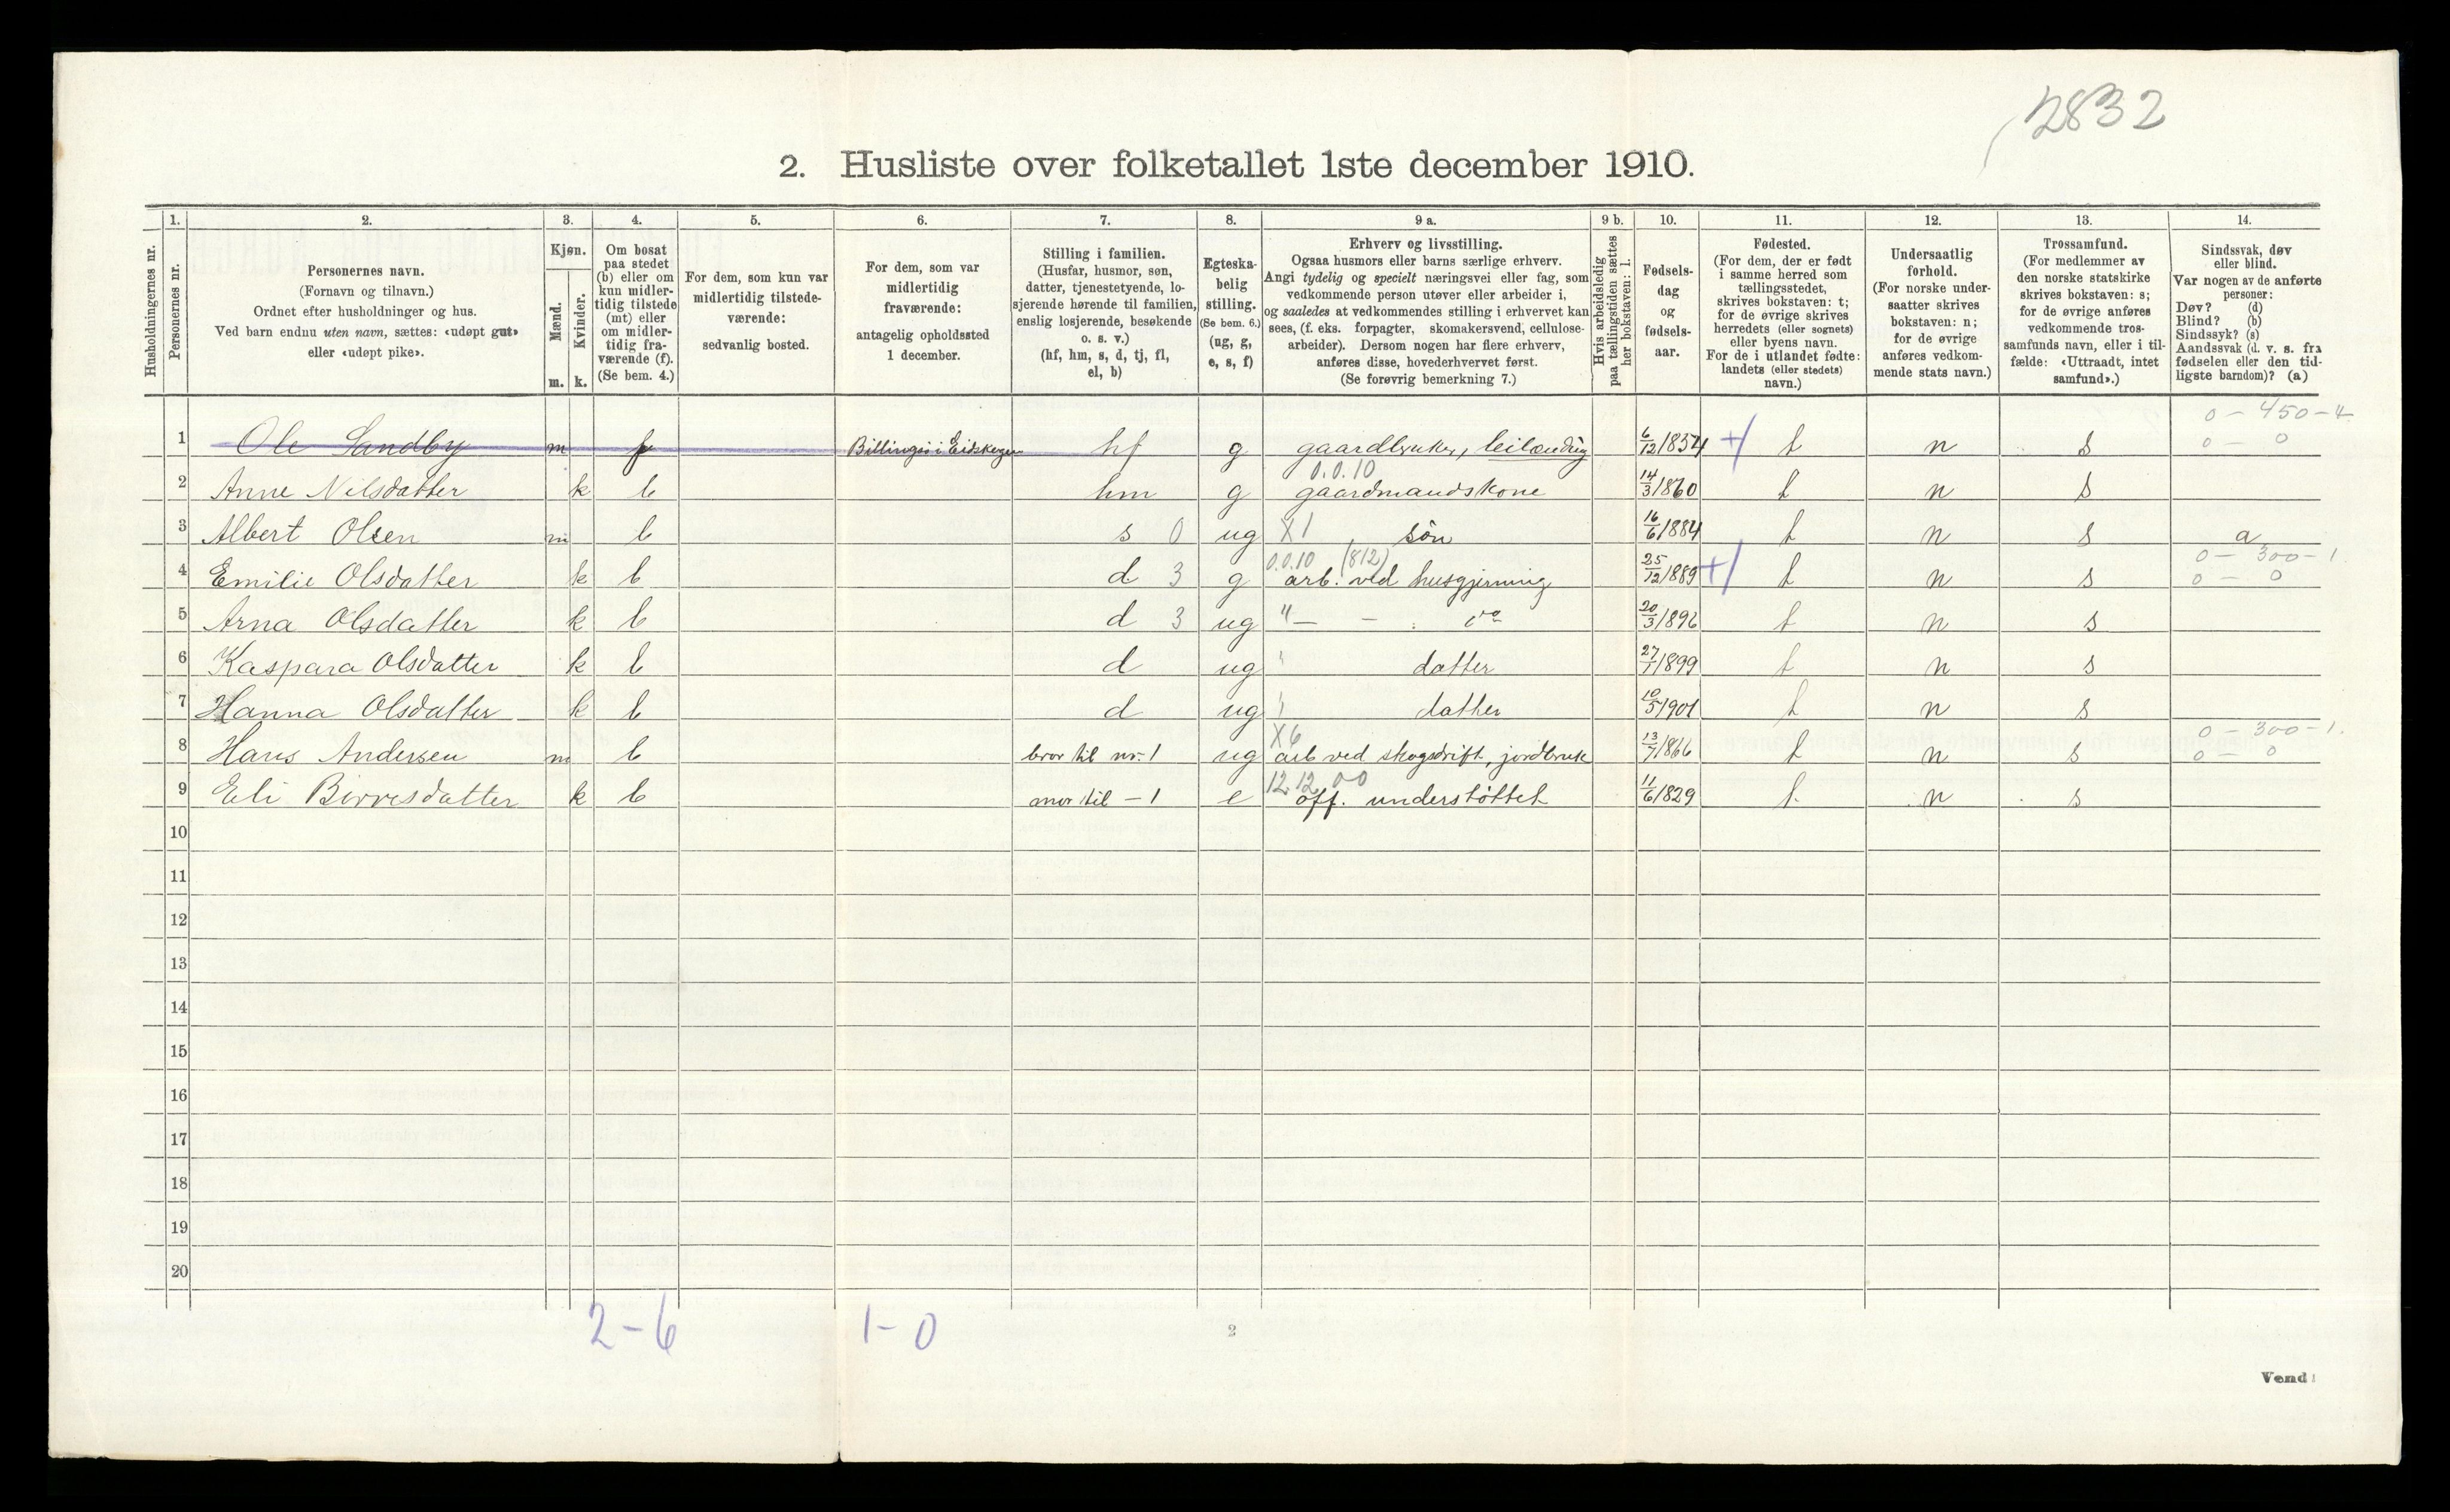 12832
2. Husliste over folketallet 1ste december 1910.
Husholdningernes nr.
1. Personernes nr.
2. Personernes navn. (Fornavn og tilnavn.) Ordnet efter husholdninger og hus. Ved barn endnu uten navn, sættes: «udøpt gut» eller «udøpt pike».
3. Kjøn. Mænd. m. Kvinder. k.
4. Om bosat paa stedet (b) eller om kun midlertidig tilstede (mt) eller om midlertidig fraværende (f). (Se bem. 4.)
5. For dem, som kun var midlertidig tilstedeværende: sedvanlig bosted.
6. For dem, som var midlertidig fraværende: antagelig opholdssted 1 december.
7. Stilling i familien. (Husfar, husmor, søn, datter, tjenestetyende, losjerende hørende til familien, enslig losjerende, besøkende o. s. v.) (hf, hm, s, d, tj, fl, el, b)
8. Egteskabelig stilling. (Se bem. 6.) (ug, g, e, s, f)
9 a. Erhverv og livsstilling. Ogsaa husmors eller barns særlige erhverv. Angi tydelig og specielt næringsvei eller fag, som vedkommende person utøver eller arbeider i, og saaledes at vedkommendes stilling i erhvervet kan sees, (f. eks. forpagter, skomakersvend, cellulosearbeider). Dersom nogen har flere erhverv, anføres disse, hovederhvervet først. (Se forøvrig bemerkning 7.)
9 b. Hvis arbeidsledig paa tællingstiden sættes her bokstaven: l.
10. Fødselsdag og fødselsaar.
11. Fødested. (For dem, der er født i samme herred som tællingsstedet, skrives bokstaven: t; for de øvrige skrives herredets (eller sognets) eller byens navn. For de i utlandet fødte: landets (eller stedets) navn.)
12. Undersaatlig forhold. (For norske undersaatter skrives bokstaven: n; for de øvrige anføres vedkommende stats navn.)
13. Trossamfund. (For medlemmer av den norske statskirke skrives bokstaven: s; for de øvrige anføres vedkommende trossamfunds navn, eller i tilfælde: «Uttraadt, intet samfund».)
14. Sindssvak, døv eller blind. Var nogen av de anførte personer: Døv? (d) Blind? (b) Sindssyk? (s) Aandssvak (d. v. s. fra fødselen eller den tidligste barndom)? (a)
0 - 450 - 4
1 Ole Sandby m f Billingsi i Eidskogen hf g gaardbruker, leilænding 6/12 1854 + t n s 0 - 0
0.0.10
2 Anne Nilsdatter k b hm g gaardmandskone 14/3 1860 t n s
3 Albert Olsen m b s 0 ug X1 søn 16/6 1884 t n s a
0.0.10 (812) 0 - 300 - 1
4 Emilie Olsdatter k b d 3 g arb. ved husgjerning 25/12 1889 + t n s 0 - 0
5 Arna Olsdatter k b d 3 ug " — - do 20/3 1896 t n s
6 Kaspara Olsdatter k b d ug datter 27/1 1899 t n s
7 Hanna Olsdatter k b d ug datter 10/5 1901 t n s
X6 0 - 300 - 1.
8 Hans Andersen m b bror til nr. 1 ug arb ved skogsdrift, jordbruk 13/7 1866 t n s 0 - 0
12.12.00
9 Eli Birresdatter k b mor til - 1 e off. understøttet 11/6 1829 t n s
10
11
12
13
14
15
16
17
18
19
20
2 - 6 1 - 0
2
Vend!